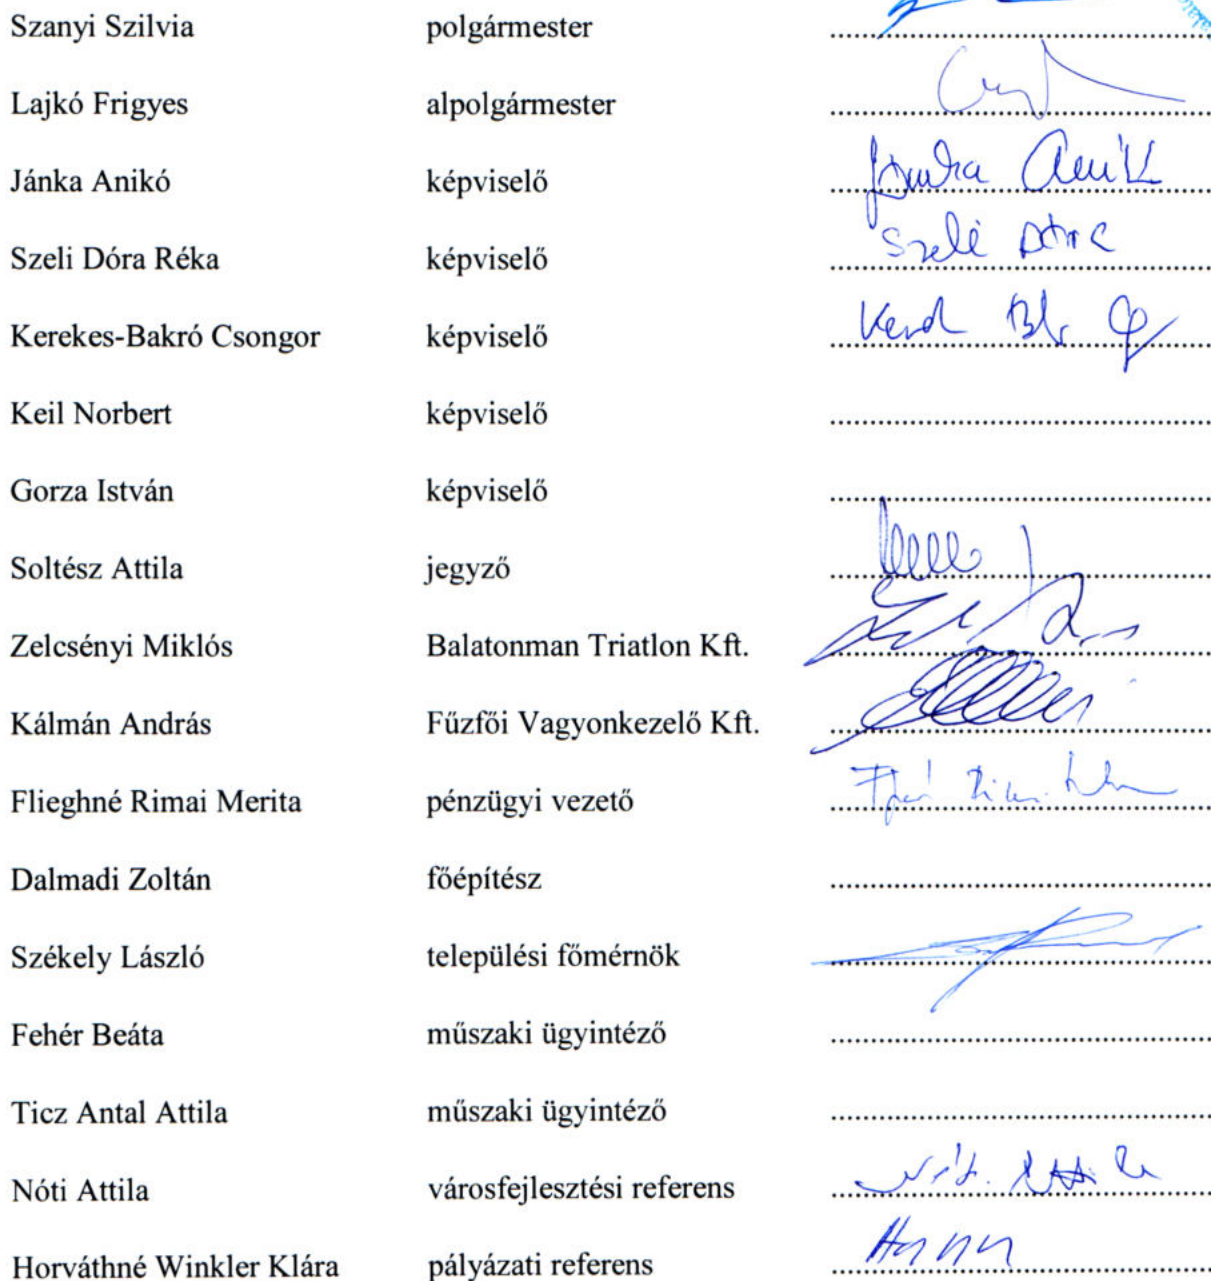 Szanyi Szilvia polgármester
Lajkó Frigyes alpolgármester
Jánka Anikó képviselő
Szeli Dóra Réka képviselő
Kerekes-Bakró Csongor képviselő
Keil Norbert képviselő
Gorza István képviselő
Soltész Attila jegyző
Zelcsényi Miklós Balatonman Triatlon Kft.
Kálmán András Fűzfői Vagyonkezelő Kft.
Flieghné Rimai Merita pénzügyi vezető
Dalmadi Zoltán főépítész
Székely László települési főmérnök
Fehér Beáta műszaki ügyintéző
Ticz Antal Attila műszaki ügyintéző
Nóti Attila városfejlesztési referens
Horváthné Winkler Klára pályázati referens